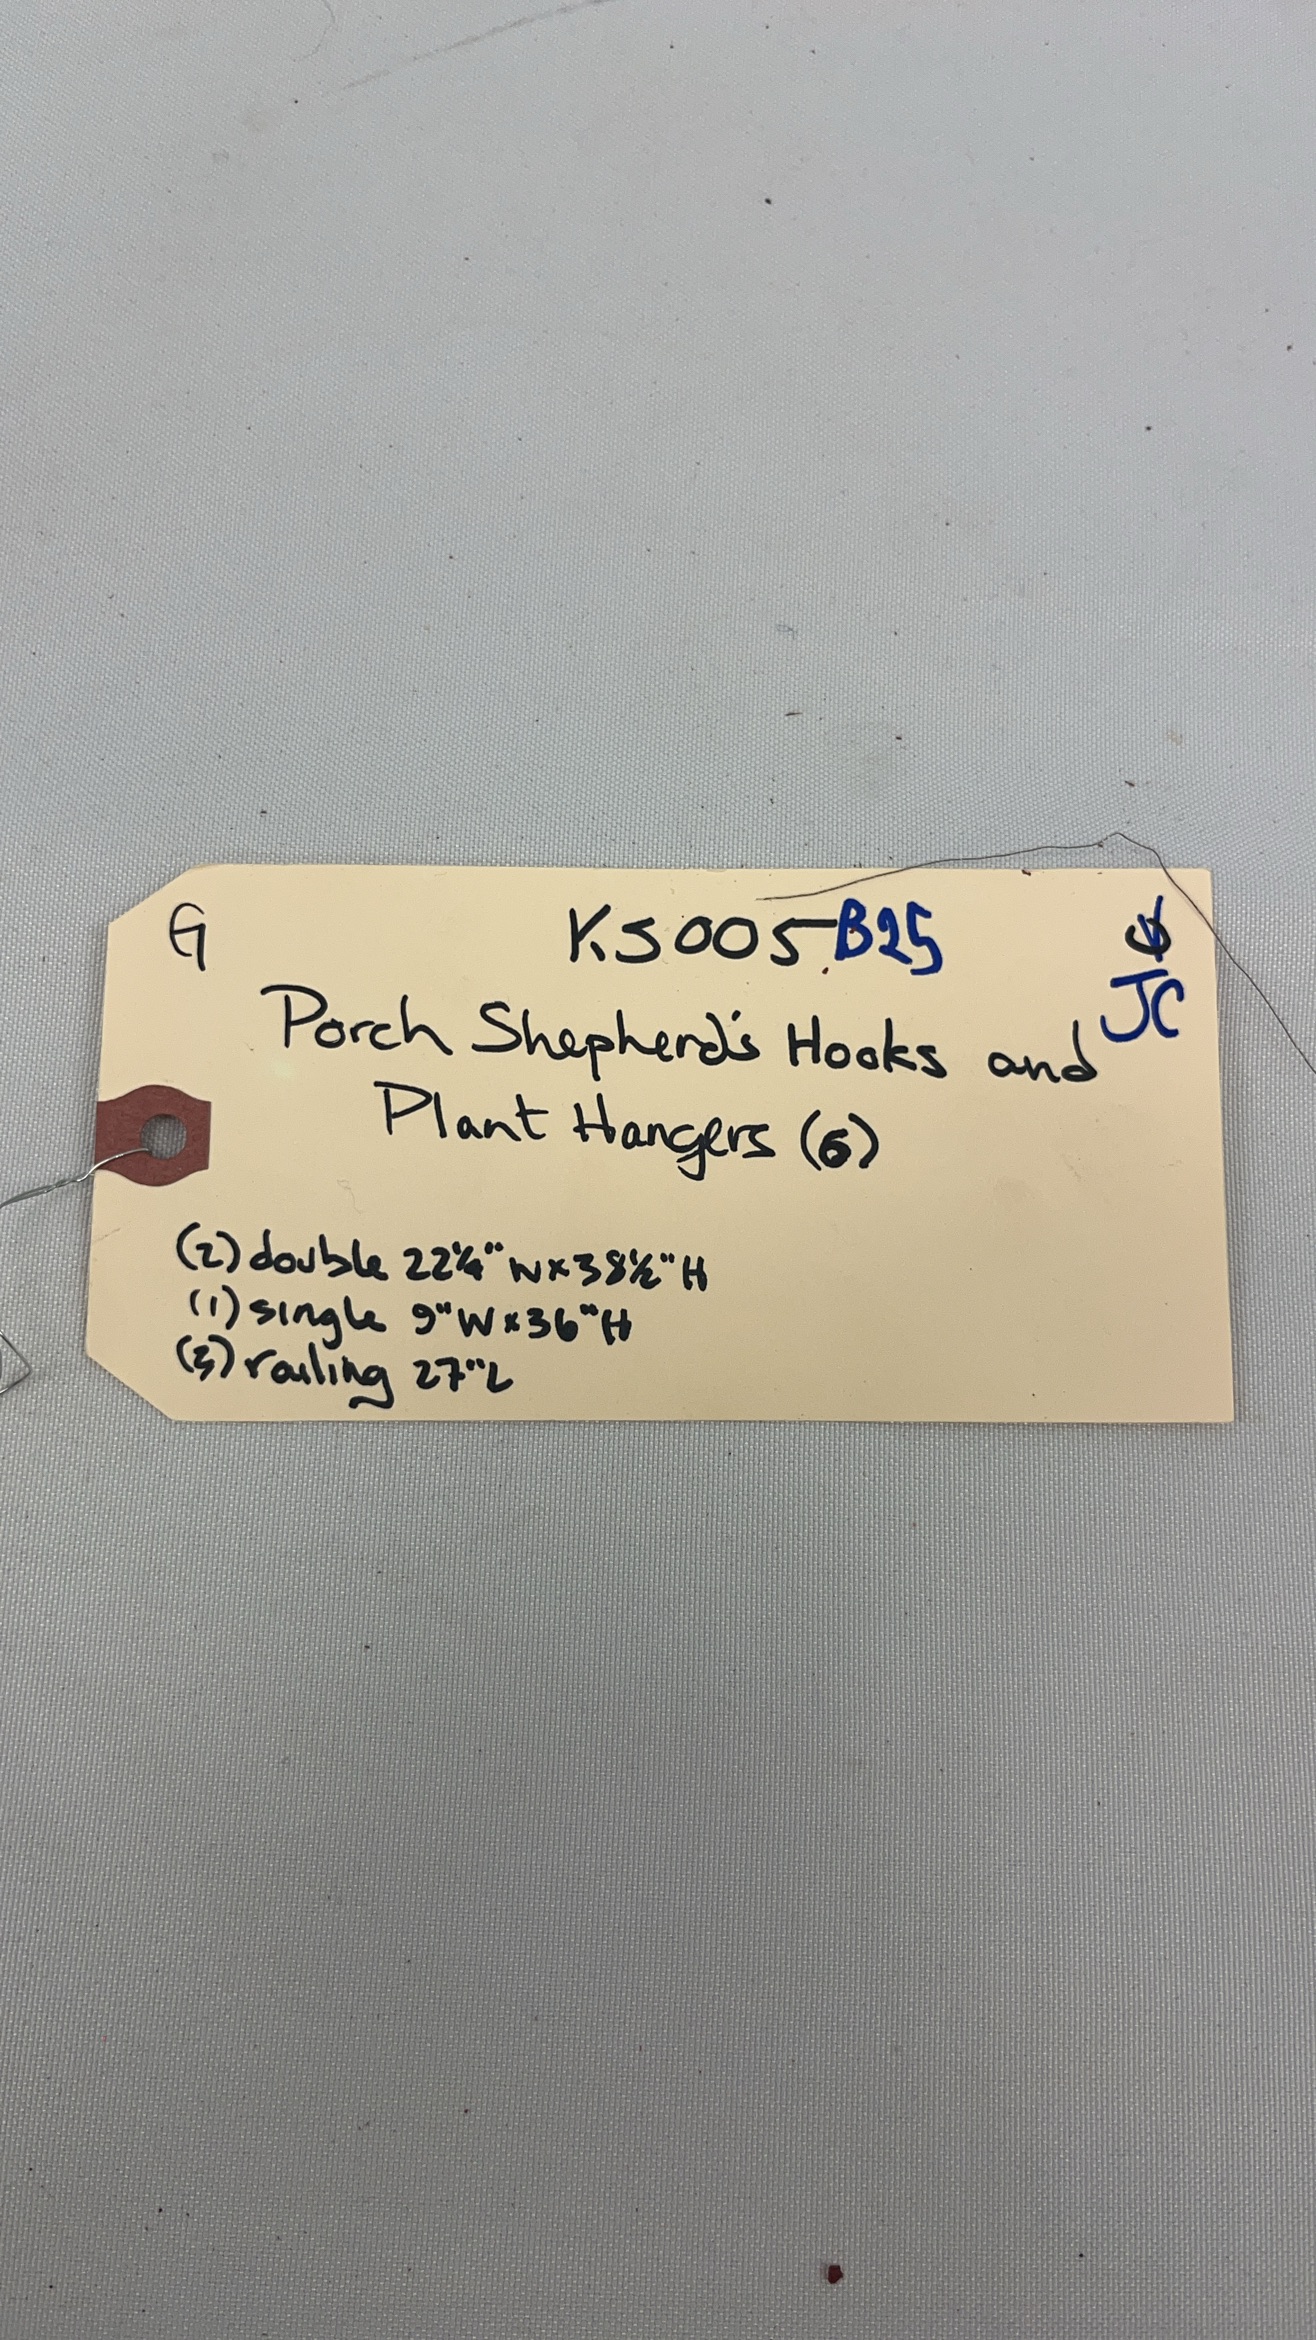 G KS005 B25
JC
Porch Shepherd's Hooks and
Plant Hangers (6)
(2) double 22¼" W x 38½" H
(1) single 9" W x 36" H
(3) railing 27" L